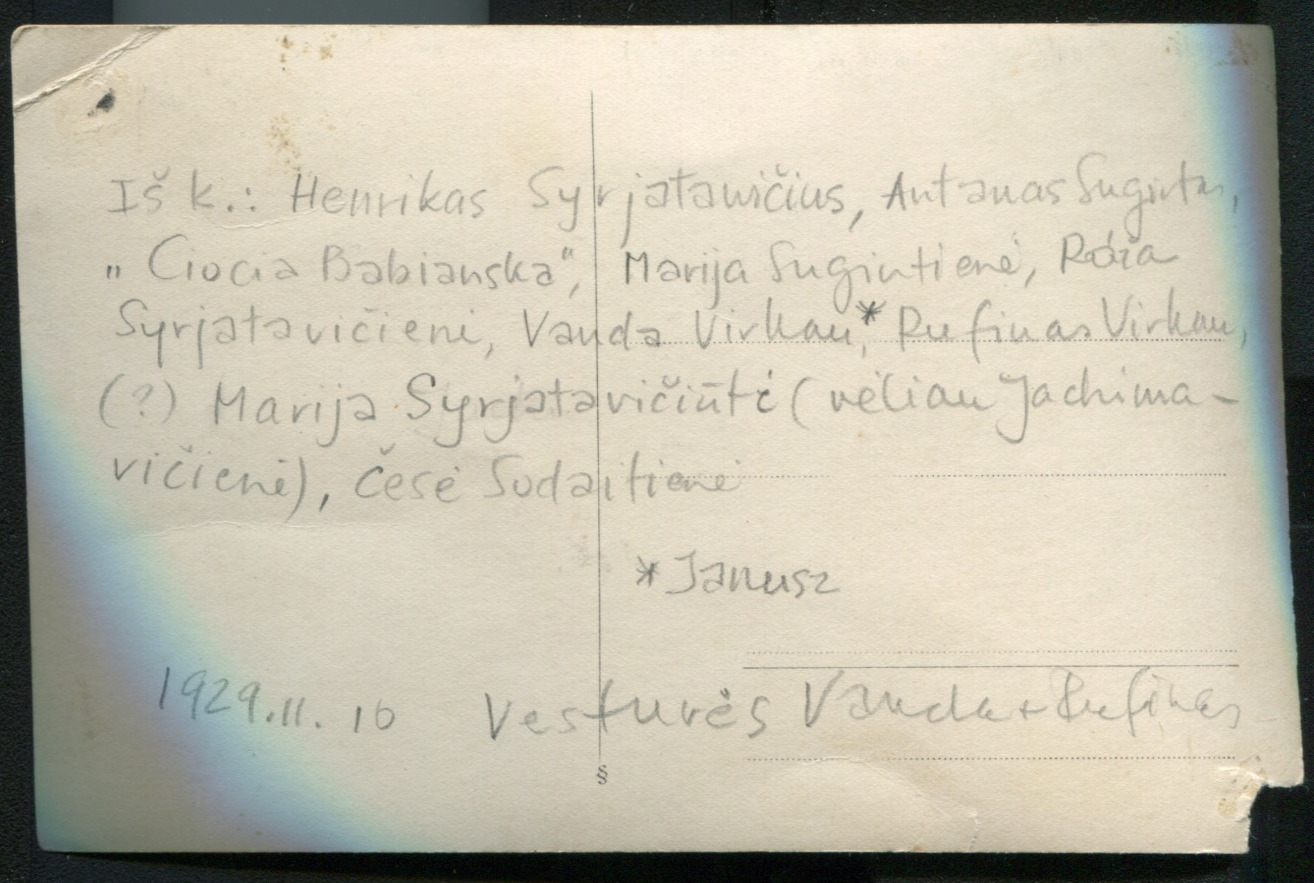 Iš k.: Henrikas Syrjatavičius, Antanas Sugintas,
„Ciocia Babianska“, Marija Sugintienė, Róża
Syrjatavičienė, Vanda Virkau,* Rufinas Virkau,
(?) Marija Syrjatavičiūtė (vėliau Jachima-
vičienė), Česė Sudaitienė
*Janusz
1929.11.10 Vestuvės Vanda + Rufinas
§